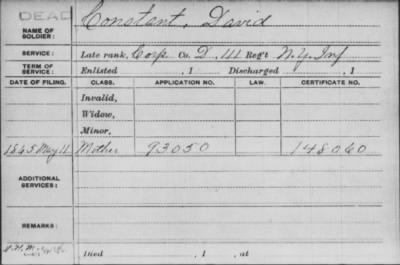 DEAD
NAME OF SOLDIER: Constant, David
SERVICE: Late rank, Corp Co. D, 111 Reg't N.Y. Inf
TERM OF SERVICE: Enlisted , 1 Discharged , 1
DATE OF FILING. CLASS. APPLICATION NO. LAW. CERTIFICATE NO.
Invalid,
Widow,
Minor,
1865 May 11 Mother 93050 148060
ADDITIONAL SERVICES:
REMARKS:
Died , 1 , at